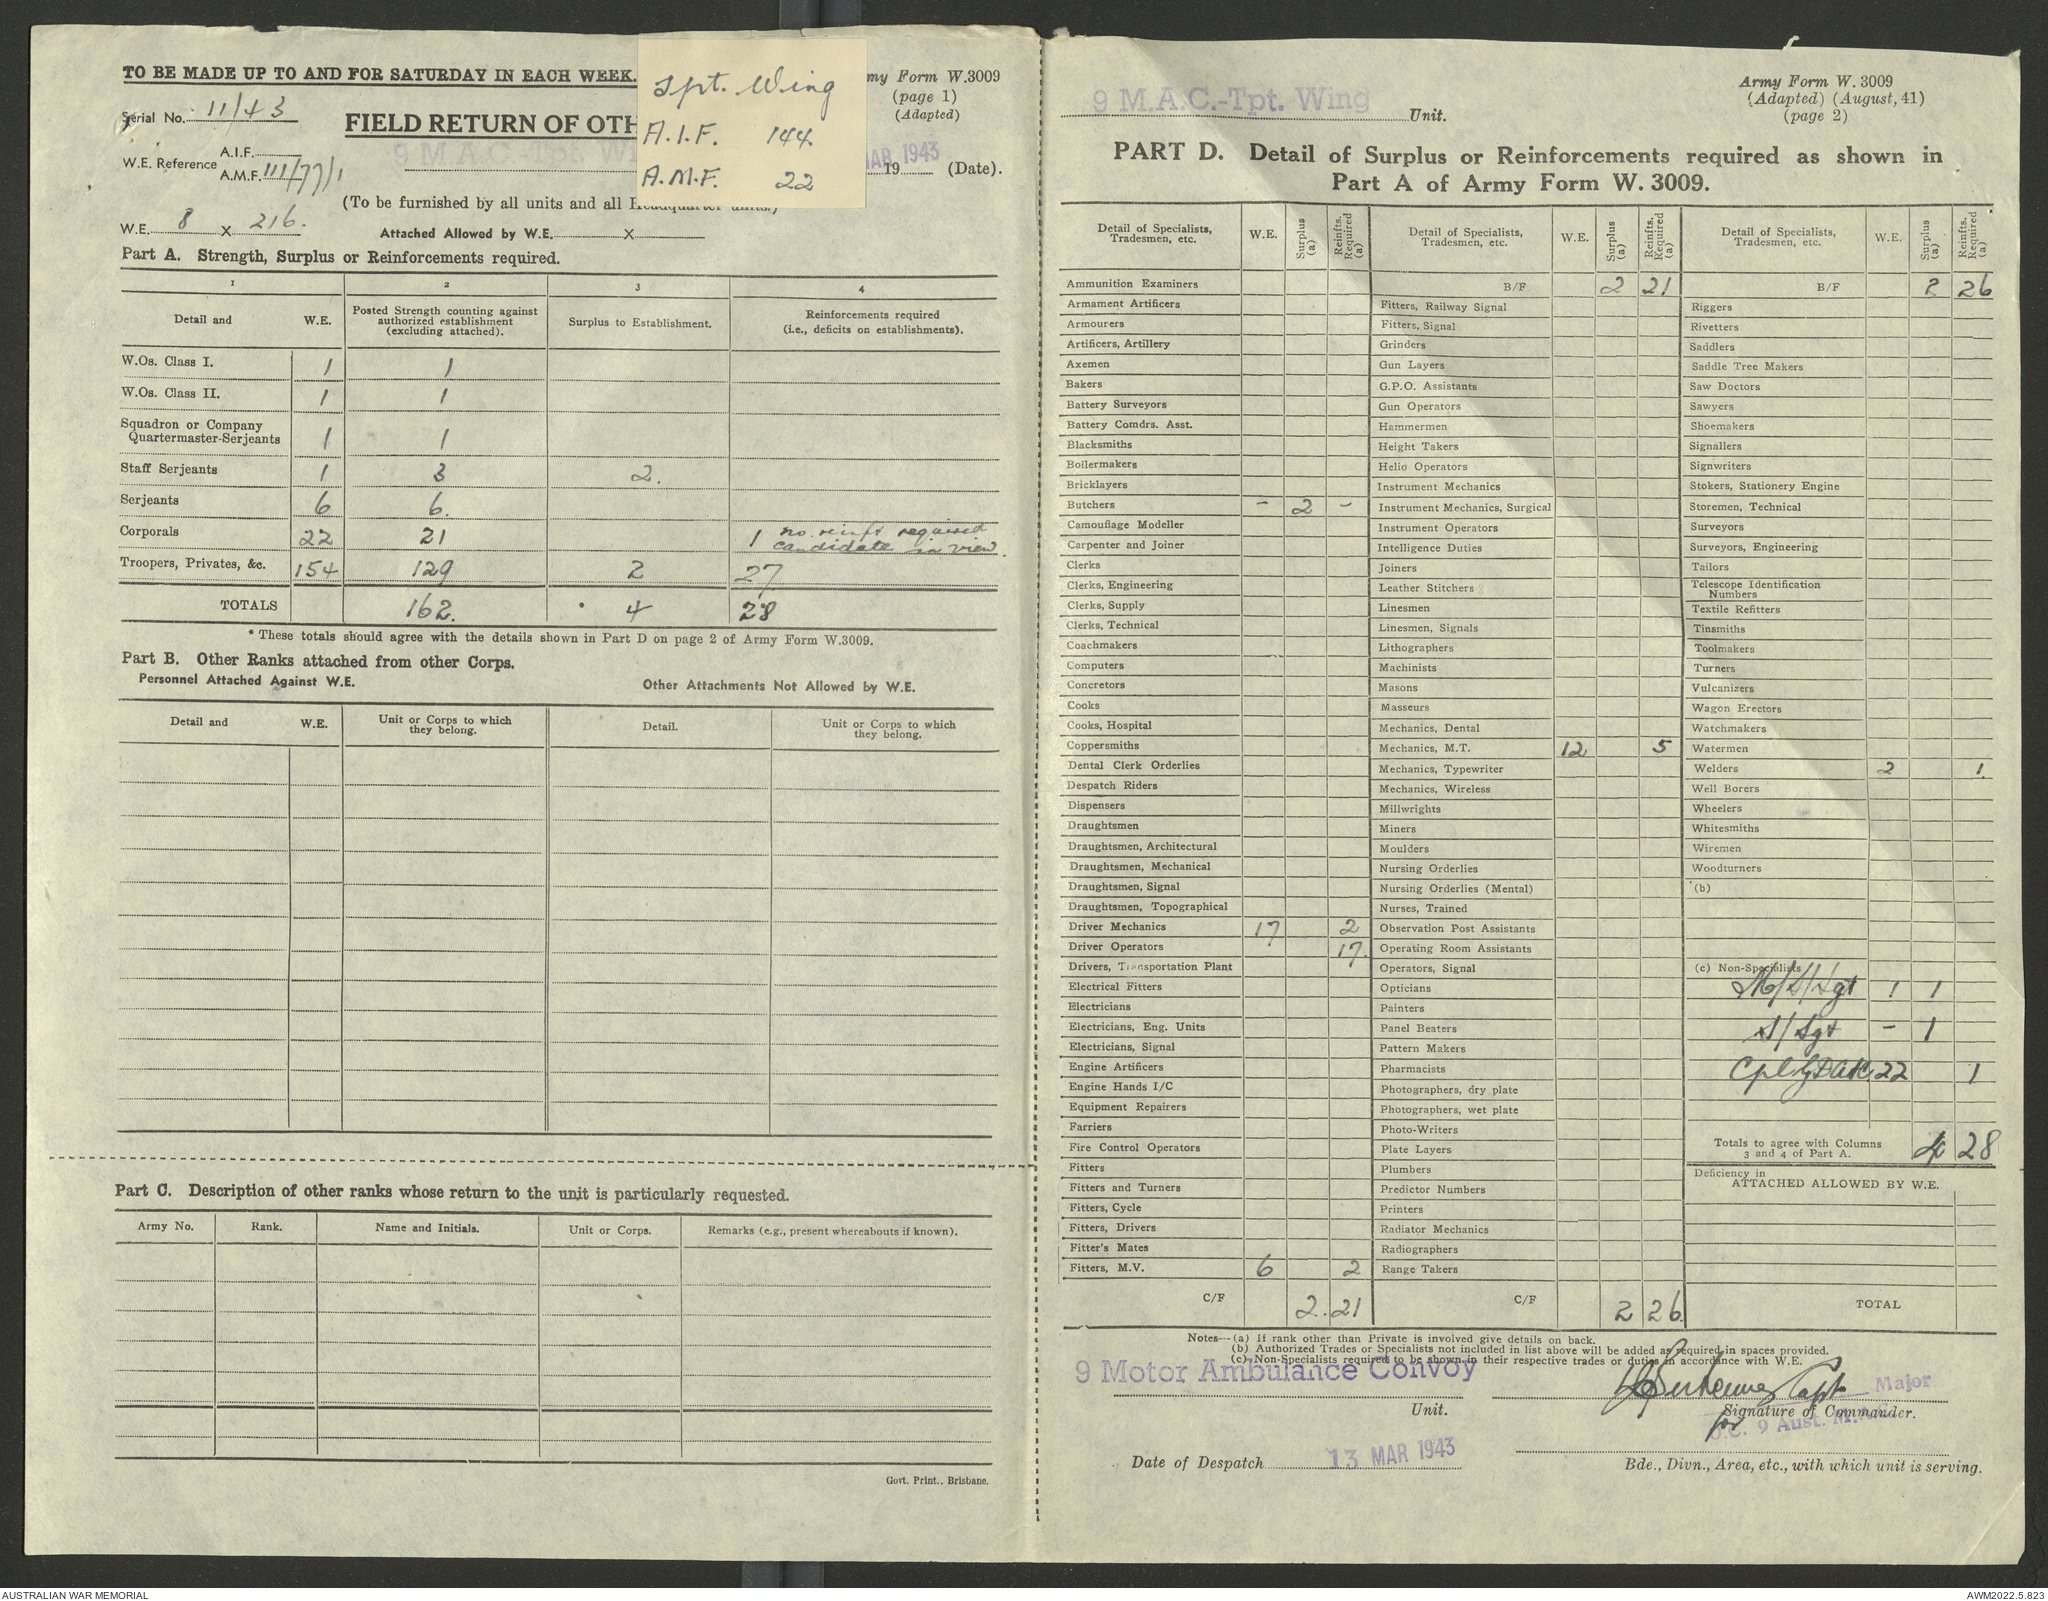 TO BE MADE UP TO AND FOR SATURDAY IN EACH WEEK.
Army Form W.3009
(page 1)
(Adapted)
Tpt. Wing
A.I.F. 144
A.M.F. 22
Serial No. 11/43
FIELD RETURN OF OTH
9 M.A.C.-Tpt. Wi
MAR 1943
19 (Date).
W.E. Reference A.I.F.
A.M.F. 111/77/1
(To be furnished by all units and all Headquarter units.)
W.E. 8 X 216.
Attached Allowed by W.E. X
Part A. Strength, Surplus or Reinforcements required.
1 2 3 4
Detail and W.E.
Posted Strength counting against authorized establishment (excluding attached).
Surplus to Establishment.
Reinforcements required (i.e., deficits on establishments).
W.Os. Class I. 1 1
W.Os. Class II. 1 1
Squadron or Company Quartermaster-Serjeants 1 1
Staff Serjeants 1 3 2.
Serjeants 6 6.
Corporals 22 21 1 no reinft required candidate in view.
Troopers, Privates, &c. 154 129 2 27
TOTALS 162. * 4 28
* These totals should agree with the details shown in Part D on page 2 of Army Form W.3009.
Part B. Other Ranks attached from other Corps.
Personnel Attached Against W.E.
Other Attachments Not Allowed by W.E.
Detail and W.E.
Unit or Corps to which they belong.
Detail.
Unit or Corps to which they belong.
Part C. Description of other ranks whose return to the unit is particularly requested.
Army No. Rank. Name and Initials. Unit or Corps. Remarks (e.g., present whereabouts if known).
Govt. Print., Brisbane.
9 M.A.C.-Tpt. Wing
Unit.
Army Form W. 3009
(Adapted) (August, 41)
(page 2)
PART D. Detail of Surplus or Reinforcements required as shown in
Part A of Army Form W. 3009.
Detail of Specialists, Tradesmen, etc. W.E. Surplus (a) Reinfts. Required (a)
Ammunition Examiners
Armament Artificers
Armourers
Artificers, Artillery
Axemen
Bakers
Battery Surveyors
Battery Comdrs. Asst.
Blacksmiths
Boilermakers
Bricklayers
Butchers - 2 -
Camouflage Modeller
Carpenter and Joiner
Clerks
Clerks, Engineering
Clerks, Supply
Clerks, Technical
Coachmakers
Computers
Concretors
Cooks
Cooks, Hospital
Coppersmiths
Dental Clerk Orderlies
Despatch Riders
Dispensers
Draughtsmen
Draughtsmen, Architectural
Draughtsmen, Mechanical
Draughtsmen, Signal
Draughtsmen, Topographical
Driver Mechanics 17 2
Driver Operators 17.
Drivers, Transportation Plant
Electrical Fitters
Electricians
Electricians, Eng. Units
Electricians, Signal
Engine Artificers
Engine Hands I/C
Equipment Repairers
Farriers
Fire Control Operators
Fitters
Fitters and Turners
Fitters, Cycle
Fitters, Drivers
Fitter's Mates
Fitters, M.V. 6 2
C/F 2. 21
Detail of Specialists, Tradesmen, etc. W.E. Surplus (a) Reinfts. Required (a)
B/F 2 21
Fitters, Railway Signal
Fitters, Signal
Grinders
Gun Layers
G.P.O. Assistants
Gun Operators
Hammermen
Height Takers
Helio Operators
Instrument Mechanics
Instrument Mechanics, Surgical
Instrument Operators
Intelligence Duties
Joiners
Leather Stitchers
Linesmen
Linesmen, Signals
Lithographers
Machinists
Masons
Masseurs
Mechanics, Dental
Mechanics, M.T. 12 5
Mechanics, Typewriter
Mechanics, Wireless
Millwrights
Miners
Moulders
Nursing Orderlies
Nursing Orderlies (Mental)
Nurses, Trained
Observation Post Assistants
Operating Room Assistants
Operators, Signal
Opticians
Painters
Panel Beaters
Pattern Makers
Pharmacists
Photographers, dry plate
Photographers, wet plate
Photo-Writers
Plate Layers
Plumbers
Predictor Numbers
Printers
Radiator Mechanics
Radiographers
Range Takers
C/F 2 26
Detail of Specialists, Tradesmen, etc. W.E. Surplus (a) Reinfts. Required (a)
B/F 2 26
Riggers
Rivetters
Saddlers
Saddle Tree Makers
Saw Doctors
Sawyers
Shoemakers
Signallers
Signwriters
Stokers, Stationery Engine
Storemen, Technical
Surveyors
Surveyors, Engineering
Tailors
Telescope Identification Numbers
Textile Refitters
Tinsmiths
Toolmakers
Turners
Vulcanizers
Wagon Erectors
Watchmakers
Watermen
Welders 2 1
Well Borers
Wheelers
Whitesmiths
Wiremen
Woodturners
(b)
(c) Non-Specialists
M/S/Sgt 1 1
S/Sgt - 1
Cpl 22 1
Totals to agree with Columns 3 and 4 of Part A. 4 28
Deficiency in
ATTACHED ALLOWED BY W.E.
TOTAL
Notes---(a) If rank other than Private is involved give details on back.
(b) Authorized Trades or Specialists not included in list above will be added as required in spaces provided.
(c) Non-Specialists required to be shown in their respective trades or duties in accordance with W.E.
9 Motor Ambulance Convoy
Unit.
Capt Major
Signature of Commander.
for O.C. 9 Aust. M.A.C.
Date of Despatch 13 MAR 1943
Bde., Divn., Area, etc., with which unit is serving.
AUSTRALIAN WAR MEMORIAL
AWM2022.5.823